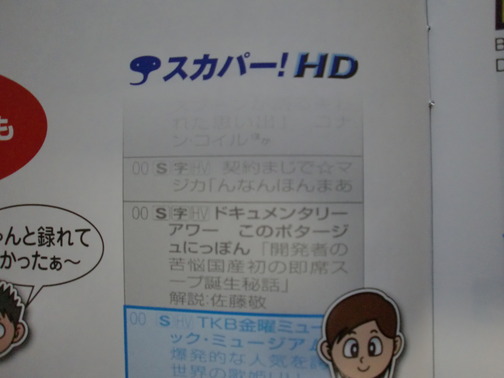 スカパー!HD
れた思い出」 コナ
ン・コイル
00 S 字 HV 契約まじで☆マ
ジカ「んなんほんまあ
00 S 字 HV ドキュメンタリー
アワー このポタージ
ュにっぽん「開発者の
苦悩国産初の即席ス
ープ誕生秘話」
解説:佐藤敬
00 S HV TKB金曜ミュー
ック・ミュージアム
爆発的な人気を誇
世界の歌姫
も
ゃんと録れて
かったぁ~
B
D